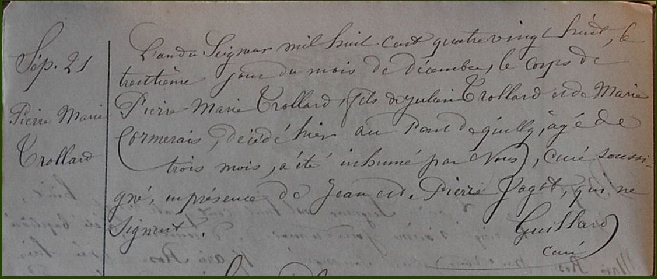 Sép. 21
Pierre Marie
Trollard
L'an du Seigneur mil huit cent quatre vingt huit, le
trentième jour du mois de décembre, le corps de
Pierre Marie Trollard, fils de Julien Trollard et de Marie
Cormerais, décédé hier au Pont de Quilly, âgé de
trois mois, a été inhumé par Nous, curé soussi-
gné, en présence de Jean et de Pierre Jagot, qui ne
signent.
Guillard
curé